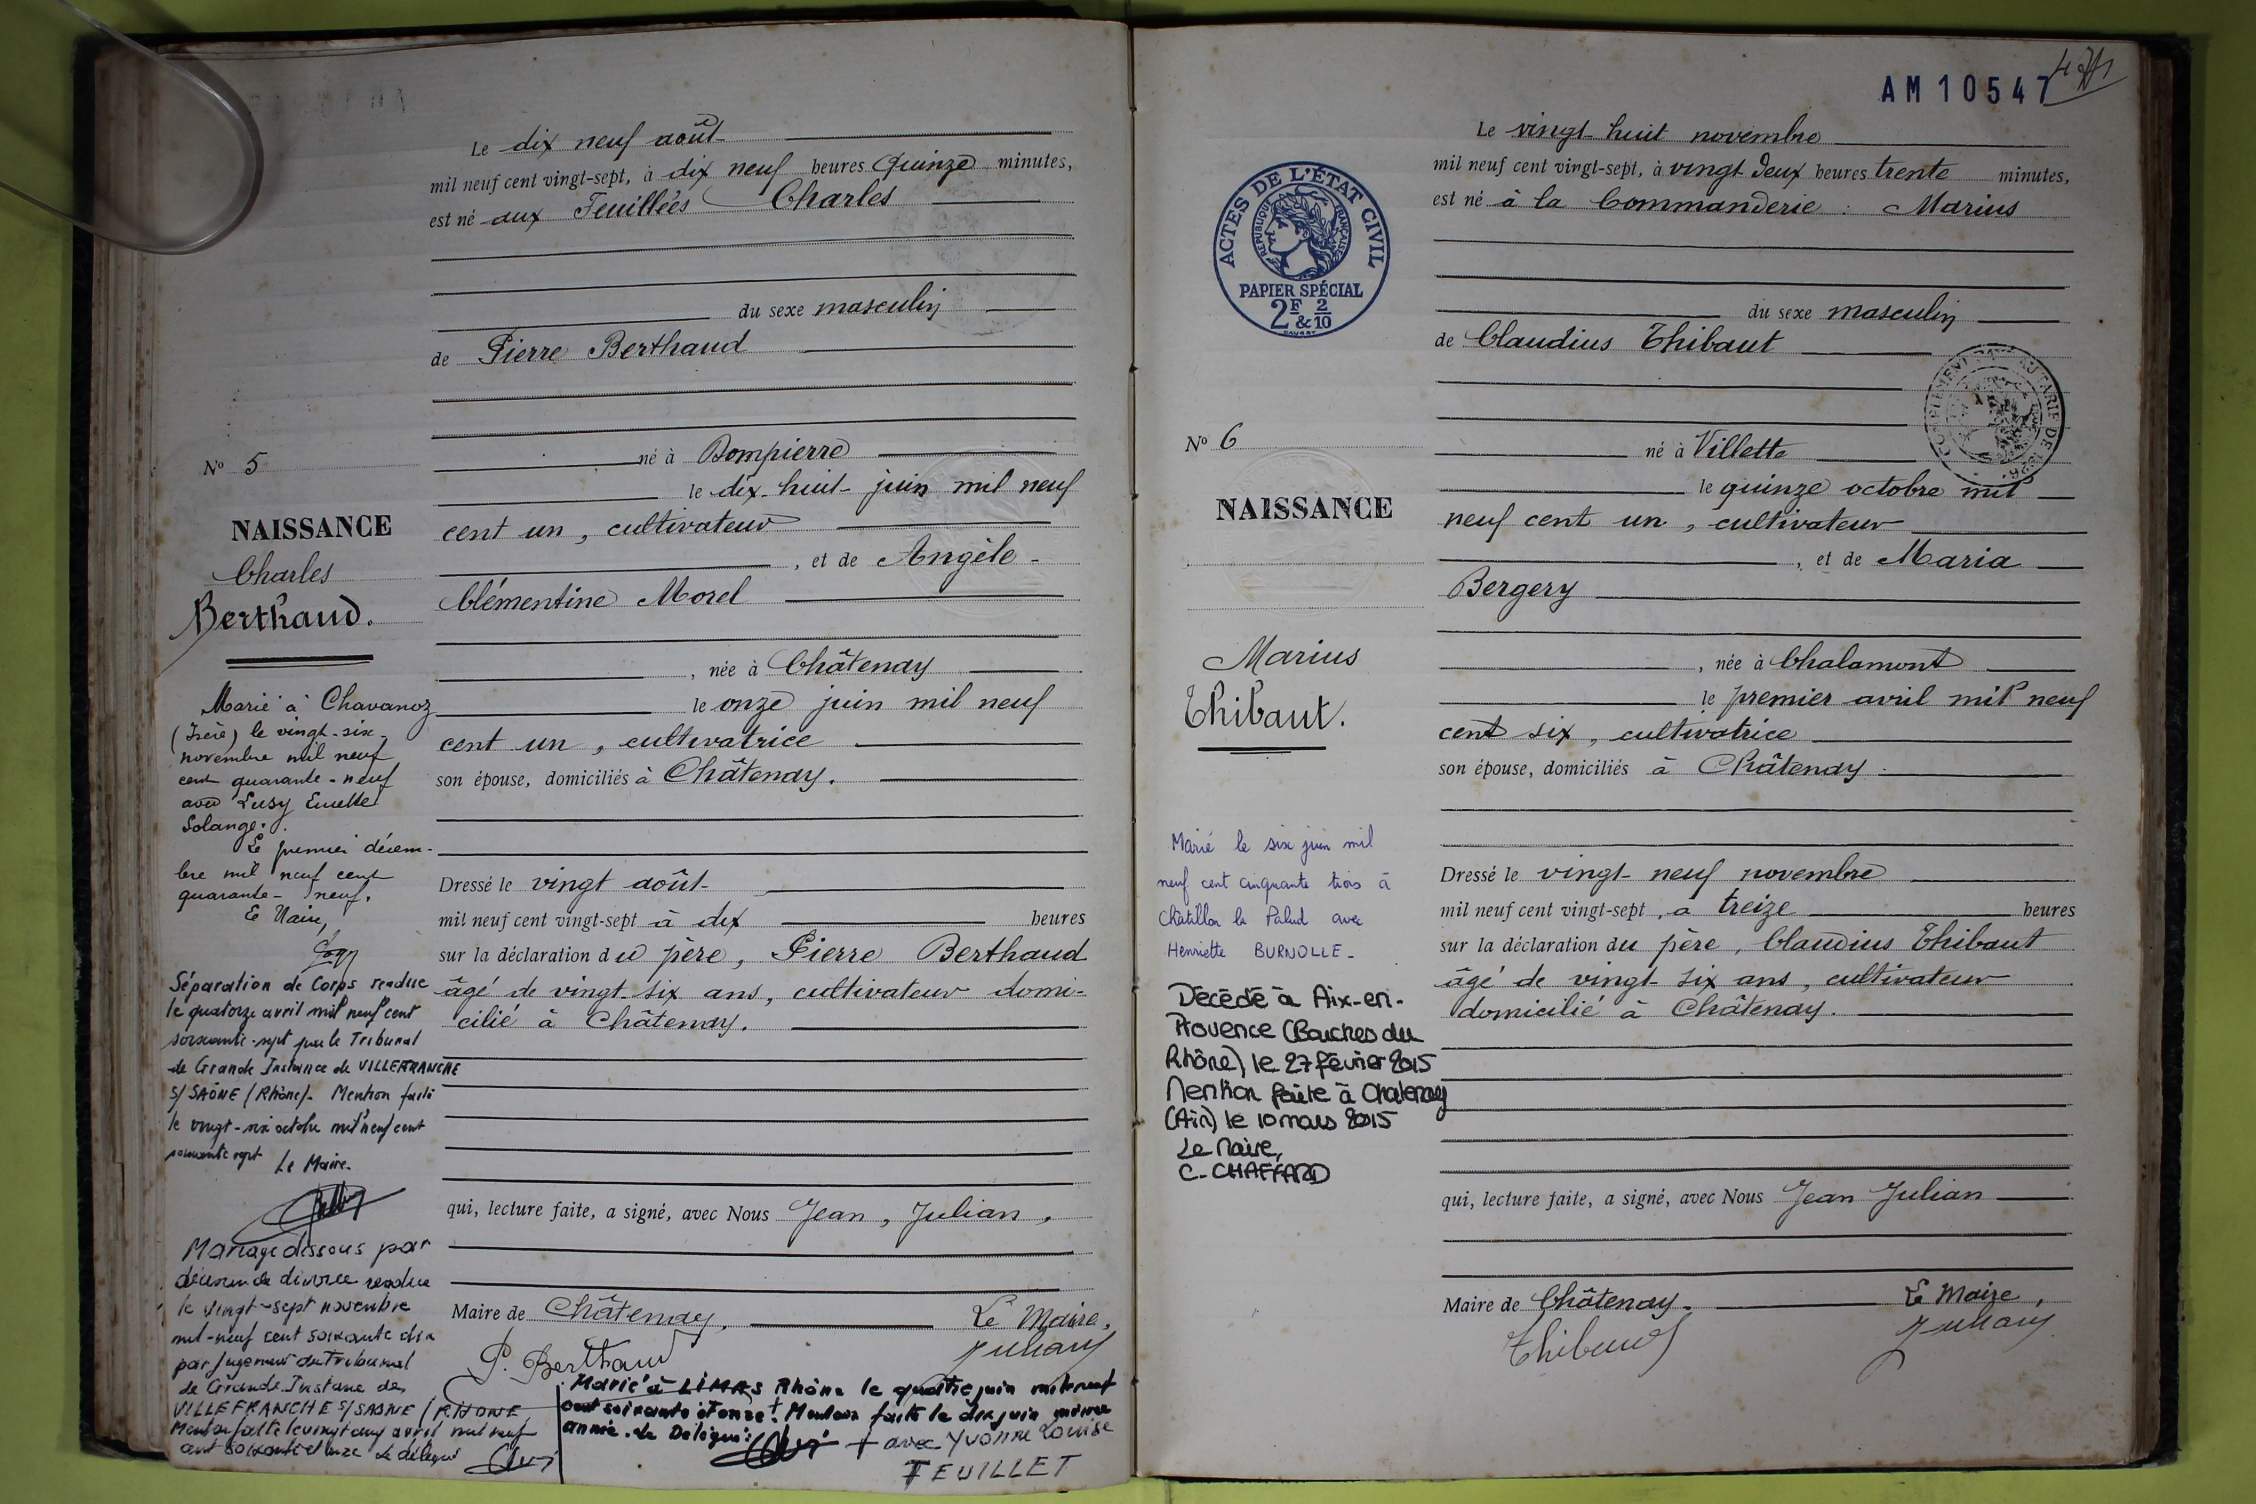 Le dix neuf août
mil neuf cent vingt-sept, à dix neuf heures quinze minutes,
est né aux Feuillées Charles
du sexe masculin
de Pierre Berthaud
né à Dompierre
le dix-huit juin mil neuf
cent un, cultivateur
, et de Angèle-
Clémentine Morel
, née à Châtenay
le onze juin mil neuf
cent un, cultivatrice
son épouse, domiciliés à Châtenay.
Dressé le vingt août
mil neuf cent vingt-sept à dix heures
sur la déclaration du père, Pierre Berthaud
âgé de vingt-six ans, cultivateur domi-
cilié à Châtenay.
qui, lecture faite, a signé, avec Nous Jean, Julian,
Maire de Châtenay, Le Maire,
P. Berthaud Julian
No 5
NAISSANCE
Charles
Berthaud.
Marié à Chavanoz
(Isère) le vingt-six
novembre mil neuf
cent quarante-neuf
avec Lusy
Solange.
Le premier décem-
bre mil neuf cent
quarante-neuf.
Le Maire,
Séparation de Corps rendue
le quatorze avril mil neuf cent
soixante-sept par le Tribunal
de Grande Instance de VILLEFRANCHE
S/SAÔNE (Rhône). Mention faite
le vingt-six octobre mil neuf cent
soixante sept Le Maire.
Mariage dissous par
décision de divorce rendue
le vingt-sept novembre
mil-neuf cent soixante dix
par jugement du Tribunal
de Grande Instance de
VILLEFRANCHE S/SAONE (RHONE
Mention faite le vingt avril mil neuf
cent soixante et onze Le délégué
Marié à LIMAS Rhône le quatre juin mil neuf
cent soixante et onze + Mention faite le dix juin même
année. Le Délégué: + avec Yvonne Louise
FEUILLET
AM 10547
Le vingt-huit novembre
mil neuf cent vingt-sept, à vingt-deux heures trente minutes,
est né à la Commanderie : Marius
du sexe masculin
de Claudius Thibaut
né à Villette
le quinze octobre mil
neuf cent un, cultivateur
, et de Maria
Bergery
, née à Chalamont
le premier avril mil neuf
cent six, cultivatrice
son épouse, domiciliés à Châtenay.
Dressé le vingt-neuf novembre
mil neuf cent vingt-sept, à treize heures
sur la déclaration du père, Claudius Thibaut
âgé de vingt-six ans, cultivateur
domicilié à Châtenay.
qui, lecture faite, a signé, avec Nous Jean Julian
Maire de Châtenay. Le Maire,
Thibaut Julian
ACTES DE L'ÉTAT CIVIL
RÉPUBLIQUE FRANÇAISE
PAPIER SPÉCIAL
2F & 2/10
No 6
NAISSANCE
Marius
Thibaut.
Marié le six juin mil
neuf cent cinquante trois à
Châtillon la Palud avec
Henriette BURNOLLE-
Décédé à Aix-en-
Provence (Bouches du
Rhône) le 27 février 2015
Mention faite à Chatenay
(Ain) le 10 mars 2015
Le Maire,
C. CHAFFARD